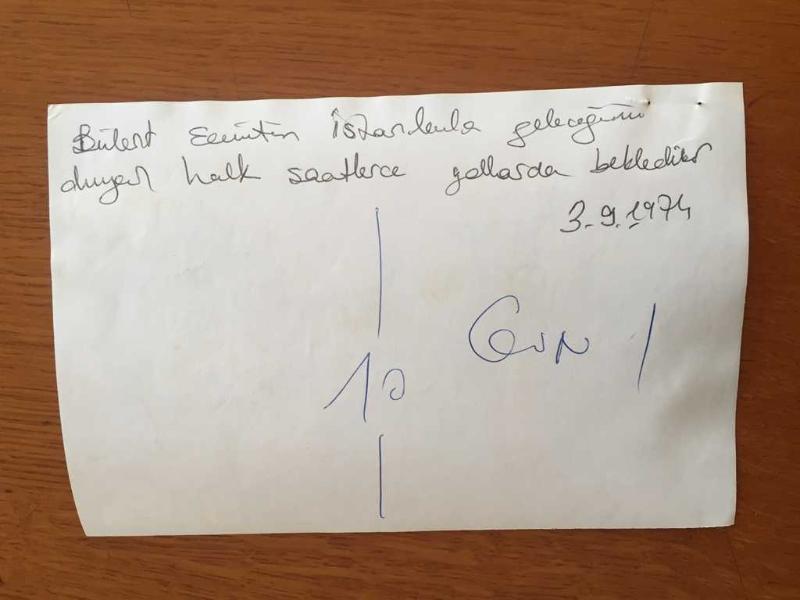 Bülent Ecevitin İstanbula geleceğini
duyan halk saatlerce yollarda bekledi
3.9.1974
10